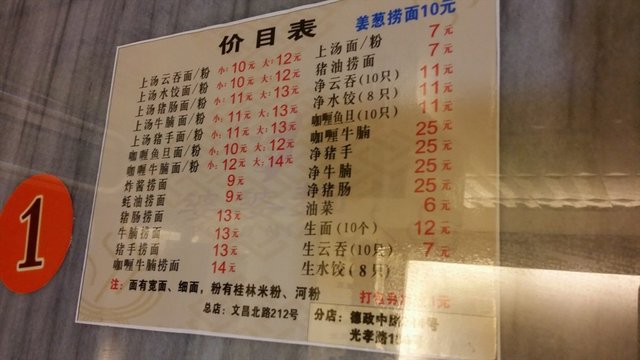 价目表
姜葱捞面10元
上汤云吞面/粉 小:10元 大:12元
上汤水饺面/粉 小:10元 大:12元
上汤猪肠面/粉 小:11元 大:13元
上汤牛腩面/粉 小:11元 大:13元
上汤猪手面/粉 小:11元 大:13元
咖喱鱼旦面/粉 小:10元 大:12元
咖喱牛腩面/粉 小:12元 大:14元
炸酱捞面 9元
蚝油捞面 9元
猪肠捞面 13元
牛腩捞面 13元
猪手捞面 13元
咖喱牛腩捞面 14元
上汤面/粉 7元
猪油捞面 7元
净云吞(10只) 11元
净水饺(8只) 11元
咖喱鱼旦(10只) 11元
咖喱牛腩 25元
净猪手 25元
净牛腩 25元
净猪肠 25元
油菜 6元
生面(10个) 12元
生云吞(10只) 7元
生水饺(8只)
注：面有宽面、细面，粉有桂林米粉、河粉
打包另 1元
总店：文昌北路212号
分店：德政中路 号
光孝路 号
1